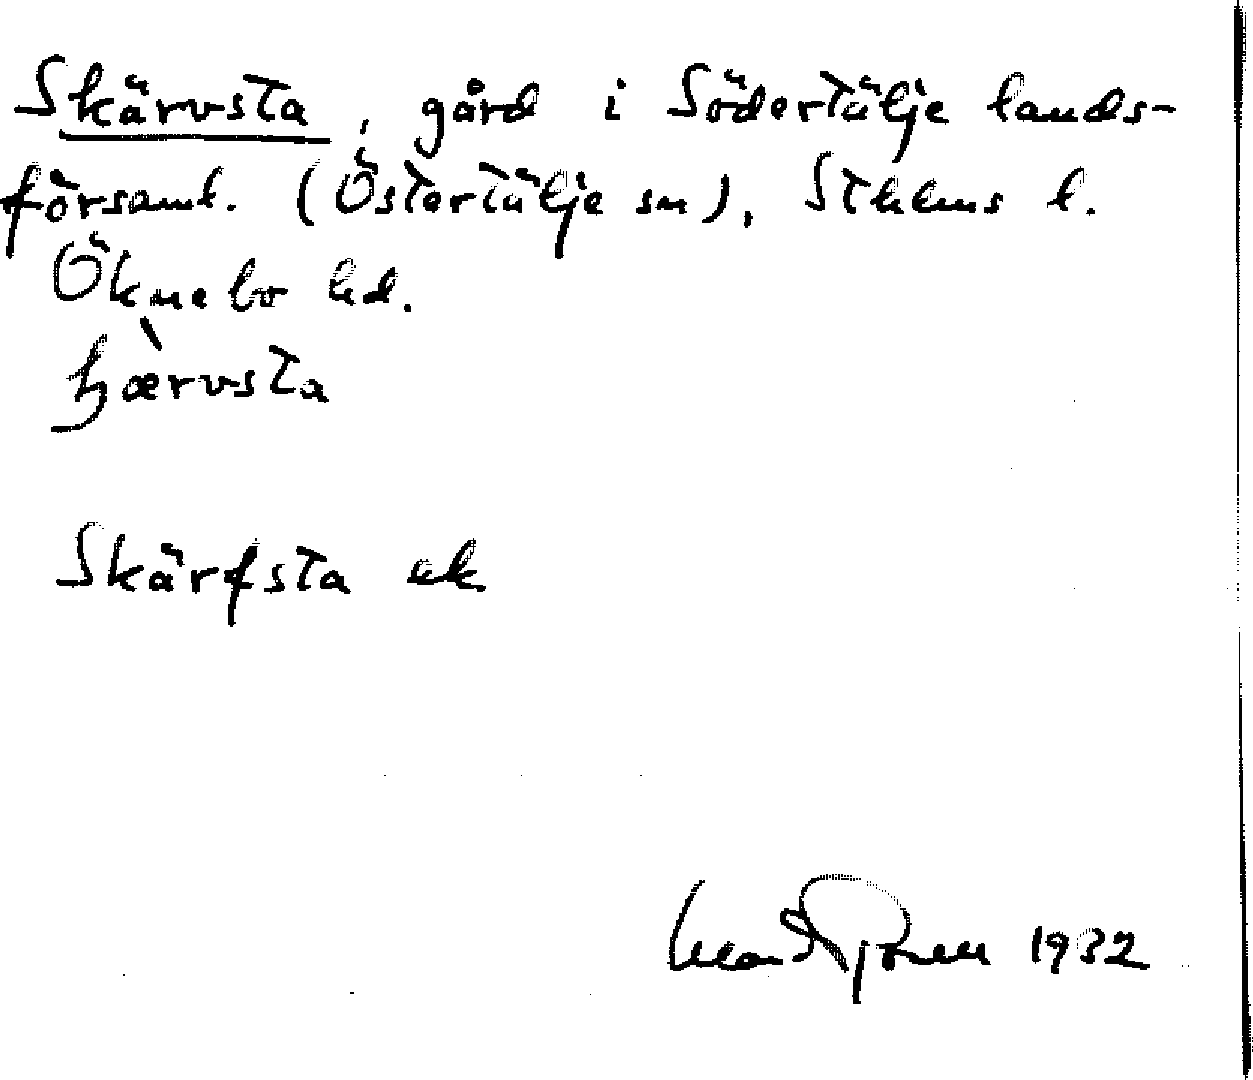 Skärvsta, gård i Södertälje lands-
församl. (Östertälje sn), Sthlms l.
Öknebo hd.
ɧæ̀rvsta
Skärfsta ek
1932